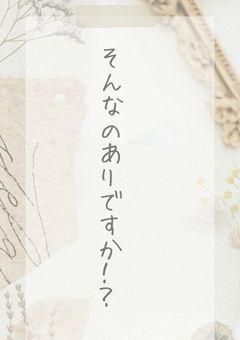 そんなのありですか!?